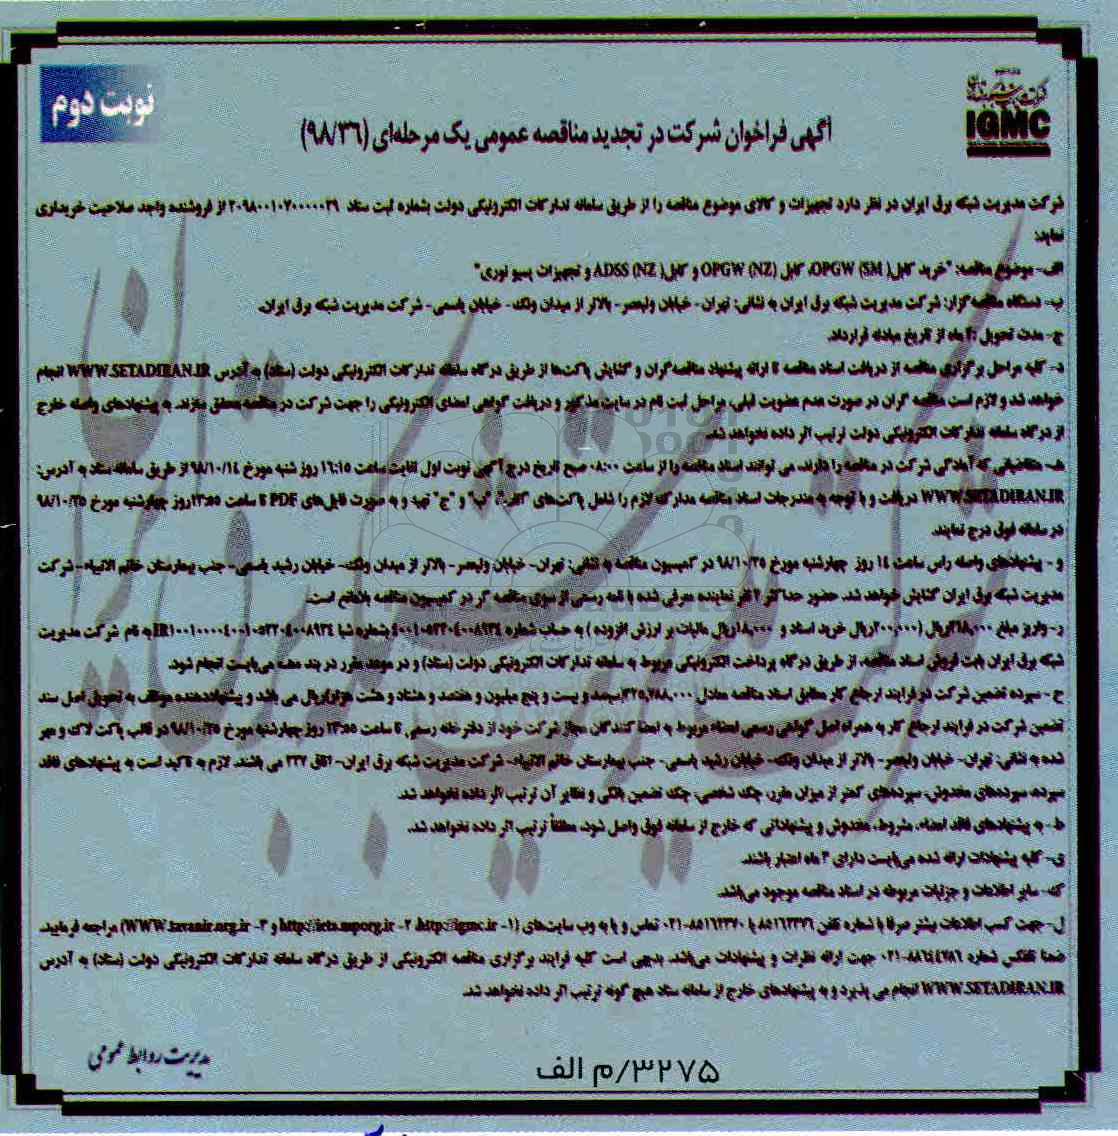 نوبت دوم
IGMC
آگهی فراخوان شرکت در تجدید مناقصه عمومی یک مرحله‌ای (۹۸/۳۶)
شرکت مدیریت شبکه برق ایران در نظر دارد تجهیزات و کالای موضوع مناقصه را از طریق سامانه تدارکات الکترونیکی دولت بشماره ثبت ستاد ۲۰۹۸۰۰۱۰۷۰۰۰۰۰۲۹ از فروشنده واجد صلاحیت خریداری
نماید:
الف- موضوع مناقصه: "خرید کابل (OPGW (SM، کابل (OPGW (NZ و کابل (ADSS (NZ و تجهیزات پسیو نوری"
ب- دستگاه مناقصه‌گزار: شرکت مدیریت شبکه برق ایران به نشانی: تهران- خیابان ولیعصر- بالاتر از میدان ونک- خیابان یاسمی- شرکت مدیریت شبکه برق ایران.
ج- مدت تحویل: ماه از تاریخ مبادله قرارداد.
د- کلیه مراحل برگزاری مناقصه از دریافت اسناد مناقصه تا ارائه پیشنهاد مناقصه‌گران و گشایش پاکت‌ها از طریق درگاه سامانه تدارکات الکترونیکی دولت (ستاد) به آدرس WWW.SETADIRAN.IR انجام
خواهد شد و لازم است مناقصه گران در صورت عدم عضویت قبلی، مراحل ثبت نام در سایت مذکور و دریافت گواهی امضای الکترونیکی را جهت شرکت در مناقصه محقق سازند. به پیشنهادهای واصله خارج
از درگاه سامانه تدارکات الکترونیکی دولت ترتیب اثر داده نخواهد شد.
هـ- متقاضیانی که آمادگی شرکت در مناقصه را دارند، می توانند اسناد مناقصه را از ساعت ۰۸:۰۰ صبح تاریخ درج آگهی نوبت اول لغایت ساعت ۱۶:۱۵ روز شنبه مورخ ۹۸/۱۰/۱۴ از طریق سامانه ستاد به آدرس:
WWW.SETADIRAN.IR دریافت و با توجه به مندرجات اسناد مناقصه مدارک لازم را شامل پاکت‌های "الف"، "ب" و "ج" تهیه و به صورت فایل‌های PDF تا ساعت ۱۳:۵۵ روز چهارشنبه مورخ ۹۸/۱۰/۲۵
در سامانه فوق درج نمایند.
و- پیشنهادهای واصله راس ساعت ۱۴ روز چهارشنبه مورخ ۹۸/۱۰/۲۵ در کمیسیون مناقصه به نشانی: تهران- خیابان ولیعصر- بالاتر از میدان ونک- خیابان رشید یاسمی- جنب بیمارستان خاتم الانبیاء- شرکت
مدیریت شبکه برق ایران گشایش خواهد شد. حضور حداکثر ۲ نفر نماینده معرفی شده با نامه رسمی از سوی مناقصه گر در کمیسیون مناقصه بلامانع است.
ر- واریز مبلغ ۲۱۸,۰۰۰ریال (۲۰۰,۰۰۰ریال خرید اسناد و ۱۸,۰۰۰ریال مالیات بر ارزش افزوده) به حساب شماره بشماره شبا به نام شرکت مدیریت
شبکه برق ایران بابت فروش اسناد مناقصه، از طریق درگاه پرداخت الکترونیکی مربوط به سامانه تدارکات الکترونیکی دولت (ستاد) و در موعد مقرر در بند هـ می‌بایست انجام شود.
ح- سپرده تضمین شرکت در فرایند ارجاع کار مطابق اسناد مناقصه معادل ۳۲۵,۷۸۸,۰۰۰(سیصد و بیست و پنج میلیون و هفتصد و هشتاد و هشت هزار)ریال می باشد و پیشنهاددهنده موظف به تحویل اصل سند
تضمین شرکت در فرایند ارجاع کار به همراه اصل گواهی رسمی امضاء مربوط به امضا کنندگان مجاز شرکت خود از دفترخانه رسمی، تا ساعت ۱۳:۵۵ روز چهارشنبه مورخ ۹۸/۱۰/۲۵ در قالب پاکت لاک و مهر
شده به نشانی: تهران- خیابان ولیعصر- بالاتر از میدان ونک- خیابان رشید یاسمی- جنب بیمارستان خاتم الانبیاء- شرکت مدیریت شبکه برق ایران- اتاق ۲۳۷ می باشند. لازم به تاکید است به پیشنهادهای فاقد
سپرده، سپرده‌های مخدوش، سپرده‌های کمتر از میزان مقرر، چک شخصی، چک تضمین بانکی و نظایر آن ترتیب اثر داده نخواهد شد.
ط- به پیشنهادهای فاقد امضاء، مشروط، مخدوش و پیشنهاداتی که خارج از سامانه فوق واصل شود، مطلقاً ترتیب اثر داده نخواهد شد.
ی- کلیه پیشنهادات ارائه شده می‌بایست دارای ۳ ماه اعتبار باشند.
ک- سایر اطلاعات و جزئیات مربوطه در اسناد مناقصه موجود می‌باشد.
ل- جهت کسب اطلاعات بیشتر صرفا با شماره تلفن ۸۵۱۶۲۳۷۶ یا ۸۵۱۶۲۳۷۰-۰۲۱ تماس و یا به وب سایت‌های (۱- http://igmc.ir، ۲- http://iets.mporg.ir و ۳- WWW.tavanir.org.ir) مراجعه فرمایید.
ضمنا تلفکس شماره ۸۸۶۴۴۷۸۶-۰۲۱ جهت ارائه نظرات و پیشنهادات می‌باشد. بدیهی است کلیه فرایند برگزاری مناقصه الکترونیکی از طریق درگاه سامانه تدارکات الکترونیکی دولت (ستاد) به آدرس
WWW.SETADIRAN.IR انجام می پذیرد و به پیشنهادهای خارج از سامانه ستاد هیچ گونه ترتیب اثر داده نخواهد شد.
مدیریت روابط عمومی
۳۲۷۵/م الف